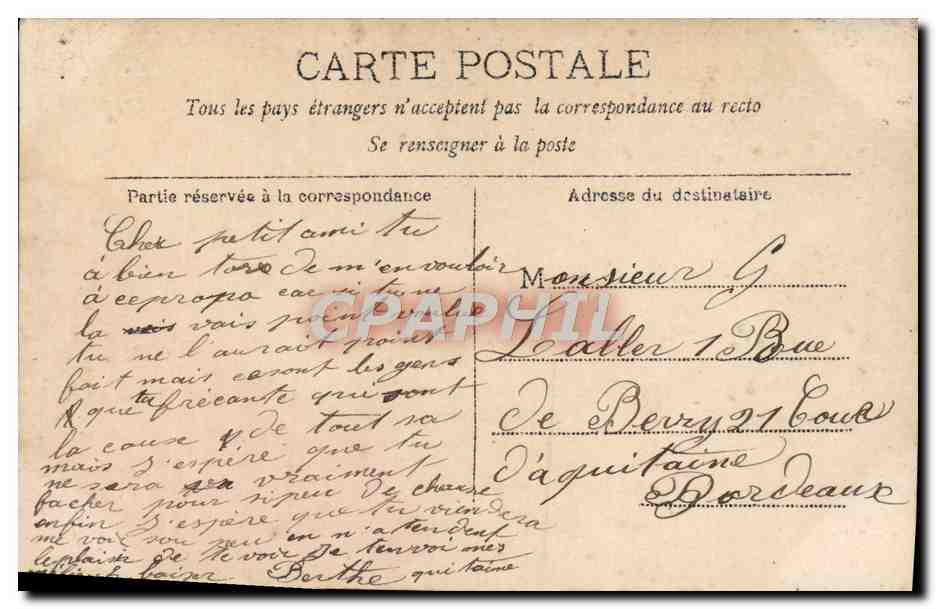 CARTE POSTALE
Tous les pays étrangers n'acceptent pas la correspondance au recto
Se renseigner à la poste
Partie réservée à la correspondance
Adresse du destinataire
Cher petit ami tu
à bien tors de m'en vouloir
à cepropo car si tu ne
la vais point voulue
tu ne l'aurait point
fait mais cesont les gens
que tu frécante qui sont
la cause de tout sa
mais j'espére que tu
ne sera vraiment
facher pour sipeu de chause
enfin j'espére que tu viendera
me voir sou peu en n'atendent
le plaisir de te voir Je tenvoi mes
baiser Berthe quitaine
Monsieur G
Laller 1 Rue
de Berry 21 Cour
d'aquitaine
Bordeaux
CPAPHIL